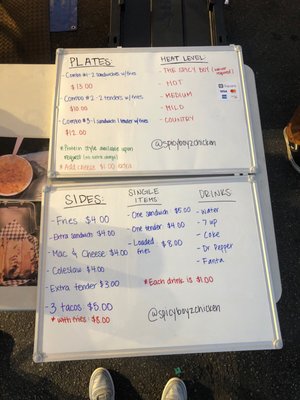 PLATES:
- Combo #1 - 2 sandwiches w/fries
$13.00
- Combo #2 - 2 tenders w/fries
$10.00
- Combo #3 - 1 sandwich 1 tender w/fries
$12.00
* Protein style available upon
request (no extra charge)
* Add cheese $1.00 extra
HEAT LEVEL:
- THE SPICY BOY (waiver required)
- HOT
- MEDIUM
- MILD
- COUNTRY
@spicyboyzchicken
SIDES:
- Fries $4.00
- Extra sandwich $4.00
- Mac & Cheese $4.00
- Coleslaw $4.00
- Extra tender $3.00
- 3 tacos $5.00
* with fries $8.00
SINGLE
ITEMS
- One sandwich $5.00
- One tender $4.00
- Loaded fries $8.00
DRINKS
- Water
- 7 up
- Coke
- Dr Pepper
- Fanta
* Each drink is $1.00
@spicyboyzchicken